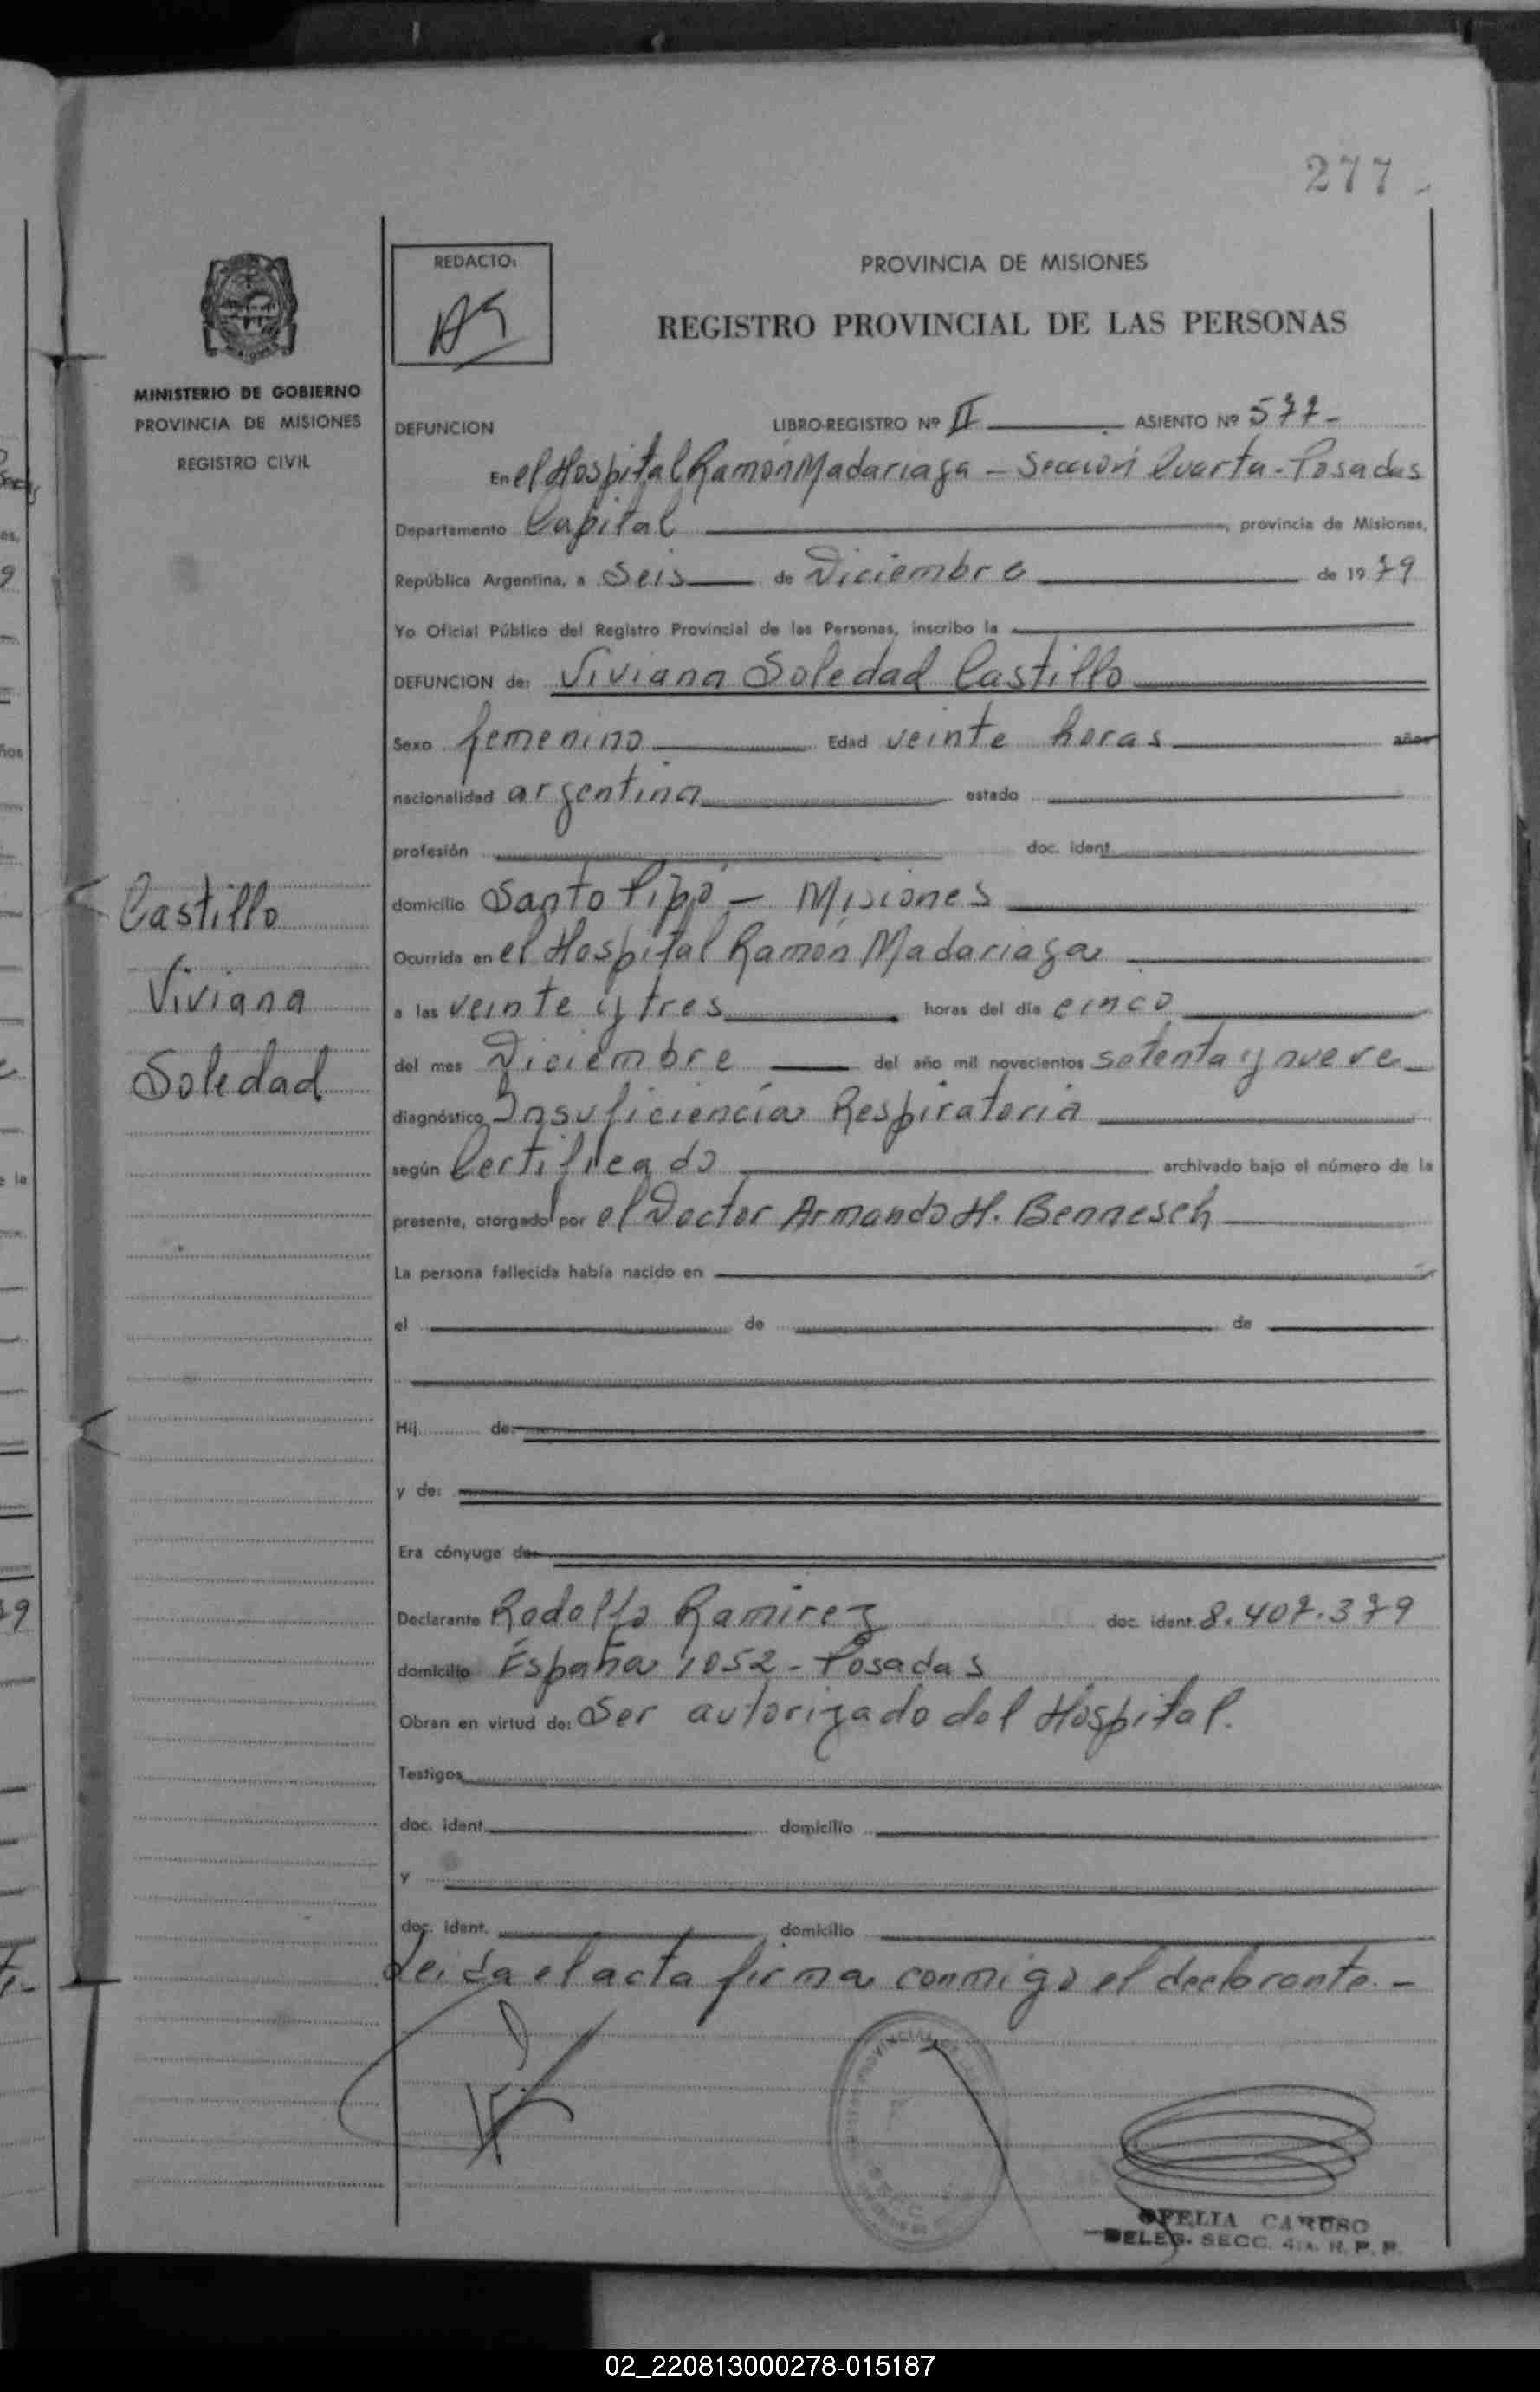 277
REDACTO:
PROVINCIA DE MISIONES
REGISTRO PROVINCIAL DE LAS PERSONAS
MINISTERIO DE GOBIERNO
PROVINCIA DE MISIONES
REGISTRO CIVIL
DEFUNCION LIBRO-REGISTRO Nº II ASIENTO Nº 577-
En el Hospital Ramón Madariaga - Sección Cuarta - Posadas
Departamento Capital, provincia de Misiones,
República Argentina, a Seis de Diciembre de 1979
Yo Oficial Público del Registro Provincial de las Personas, inscribo la
DEFUNCION de: Viviana Soledad Castillo
Sexo femenino Edad veinte horas años
nacionalidad argentina estado
profesión doc. ident.
Castillo
Viviana
Soledad
domicilio Santo Pipó - Misiones
Ocurrida en el Hospital Ramón Madariaga
a las veinte y tres horas del día cinco
del mes Diciembre del año mil novecientos setenta y nueve
diagnóstico Insuficiencia Respiratoria
según Certificado archivado bajo el número de la
presente, otorgado por el Doctor Armando H. Bennesch
La persona fallecida había nacido en
el de de
Hij de:
y de:
Era cónyuge de
Declarante Rodolfo Ramirez doc. ident. 8.407.379
domicilio España 1052 - Posadas
Obran en virtud de: Ser autorizado del Hospital.
Testigos
doc. ident. domicilio
y
doc. ident. domicilio
Leida el acta firma conmigo el declarante. -
OFELIA CARUSO
DELEG. SECC. 4ª. R. P. P.
02_220813000278-015187